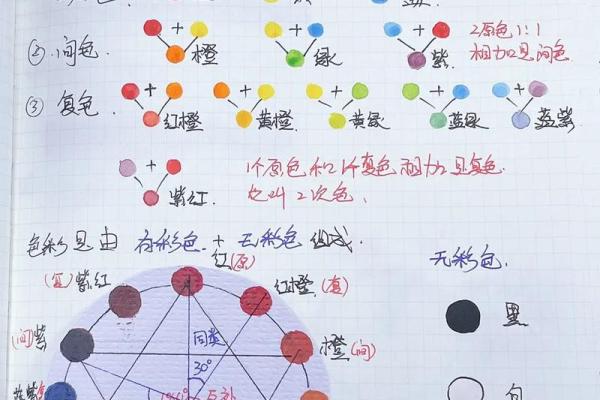 ② 间色. + 橙 + 绿 + 紫. 2原色1:1
相加是间色
③ 复色. + 红橙 + 黄橙 + 黄绿 + 蓝绿 + 蓝紫
+ 紫红. 1个原色和1个复色相加是复色.
也叫2次色.
色彩是由 有彩色. + 无彩色 组成.
无彩色.
红(原)
紫红 红橙 (复)
黑
(间)紫 同类 橙(间)
30°
蓝紫 互补
白